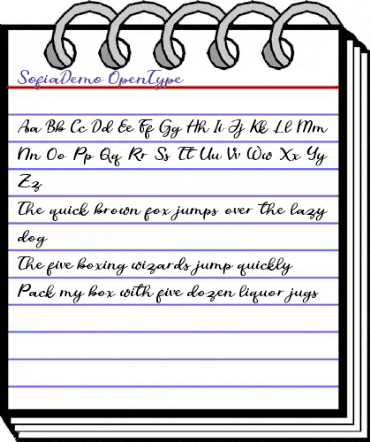 SofiaDemo OpenType
Aa Bb Cc Dd Ee Ff Gg Hh Ii Jj Kk Ll Mm
Nn Oo Pp Qq Rr Ss Tt Uu Vv Ww Xx Yy
Zz
The quick brown fox jumps over the lazy
dog
The five boxing wizards jump quickly
Pack my box with five dozen liquor jugs